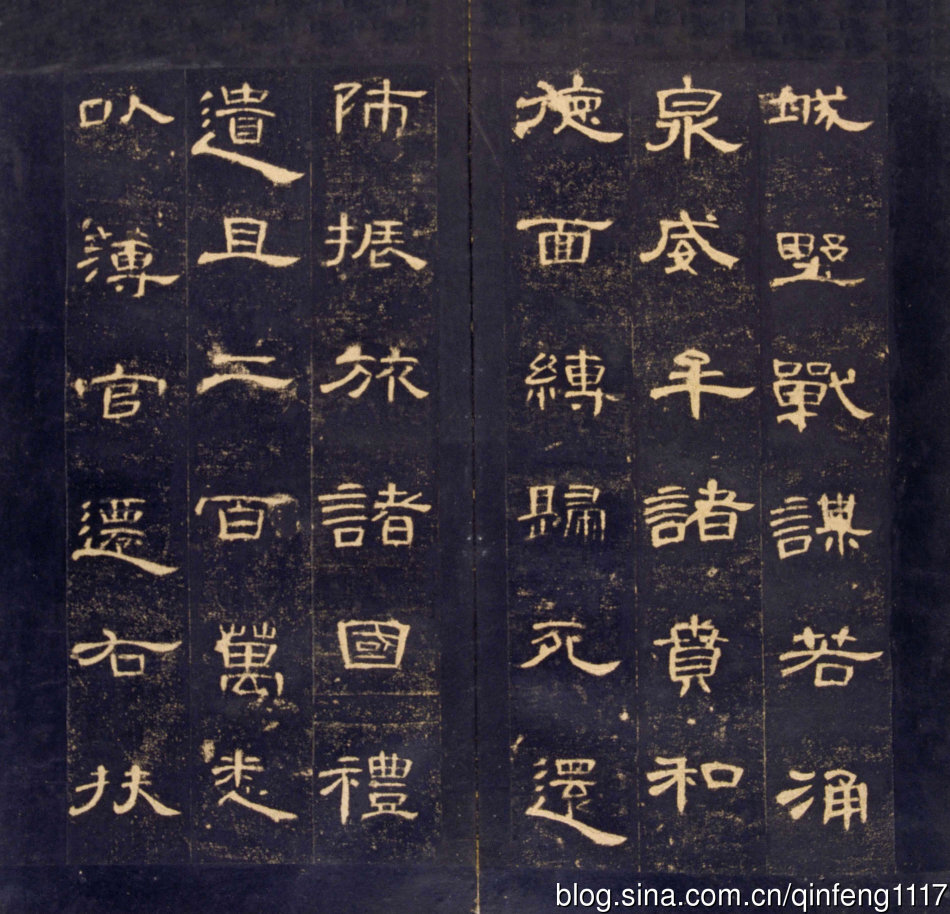 城野戰謀若涌
泉威牟諸賁和
德面縛歸死還
師振旅諸國禮
遺且二百萬悉
以簿官遷右扶
blog.sina.com.cn/qinfeng1117